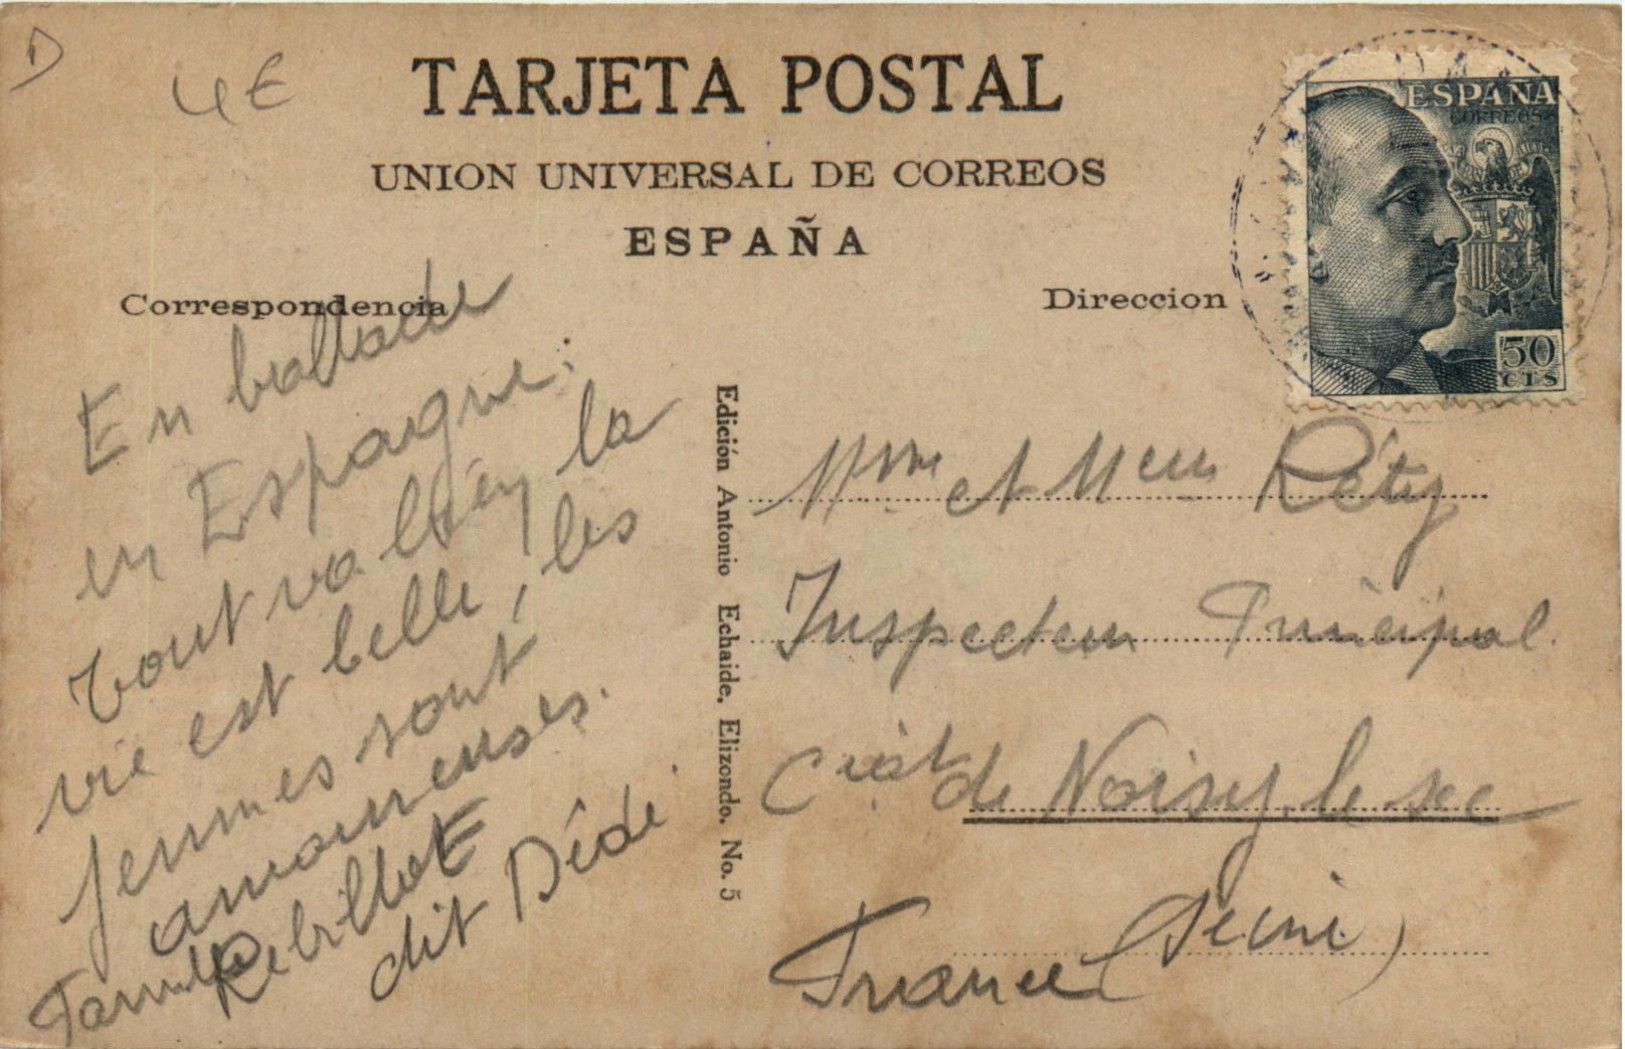 D
4€
TARJETA POSTAL
UNION UNIVERSAL DE CORREOS
ESPAÑA
Correspondencia
Direccion
ESPAÑA
CORREOS
50
CTS
En ballade
en Espagne.
tout va bien la
vie est belle, les
femmes sont
amoureuses.
Famille Rebillot
dit Dédé
Edición Antonio Echaide. Elizondo. No. 5
Mme et Meur Réty
Inspecteur Principal
Ciat de Noisy le sec
(Seine)
France